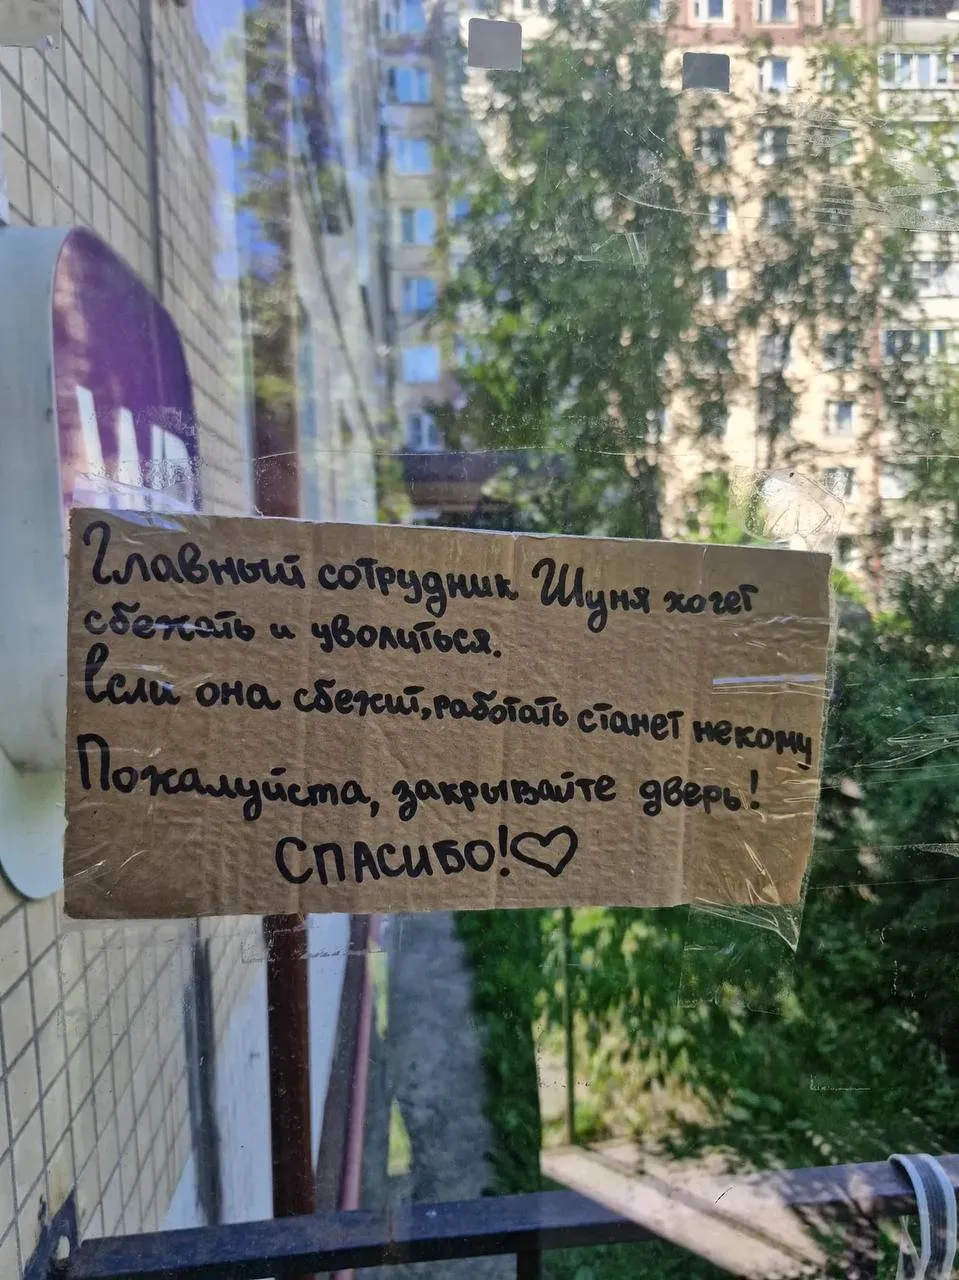 Главный сотрудник Шуня хочет
сбежать и уволиться.
Если она сбежит, работать станет некому
Пожалуйста, закрывайте дверь!
СПАСИБО!♡